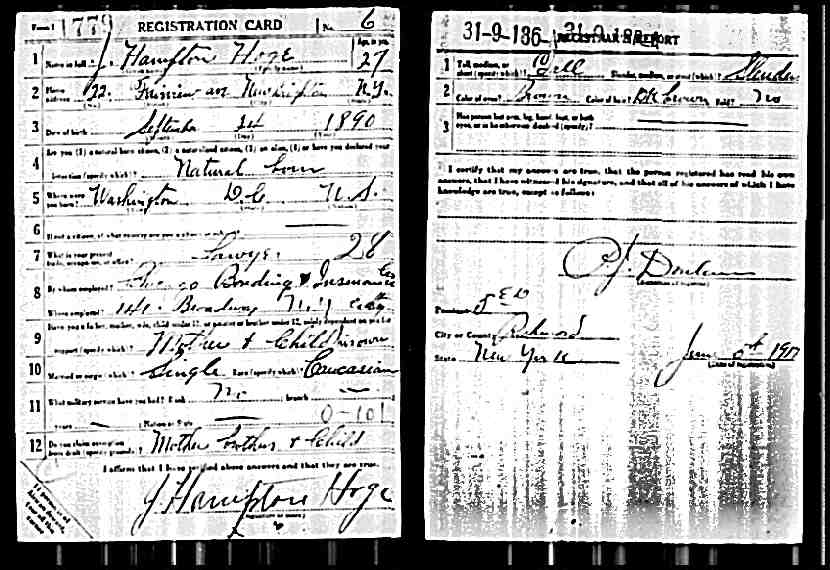 Form 1 1779 REGISTRATION CARD No. 6
1 Name in full J. Hampton Hoge Age, in yrs. 27
2 Home address 22 Fairview ave New Brighton N.Y.
3 Date of birth September 1st 1890
4 Are you (1) a natural-born citizen, (2) a naturalized citizen, (3) an alien, (4) or have you declared your
intention (specify which)? Natural born
5 Where were you born? Washington D.C. U.S.
6 If not a citizen, of what country are you a citizen or subject?
7 What is your present trade, occupation, or office? Lawyer 28
8 By whom employed? Chicago Bonding & Insurance Co
Where employed? Broadway N.Y. City
9 Have you a father, mother, wife, child under 12, or a sister or brother under 12, solely dependent on you for
support (specify which)? Mother & Child
10 Married or single (which)? Single Race (specify which)? Caucasian
11 What military service have you had? Rank No branch
years Nation or State
12 Do you claim exemption from draft (specify grounds)? Mother brother & Child
I affirm that I have verified above answers and that they are true.
J Hampton Hoge
(Signature or mark)
31-9-136 REGISTRAR'S REPORT
1 Tall, medium, or short (specify which)? Tall Slender, medium, or stout (which)? Slender
2 Color of eyes? Brown Color of hair? Dk brown Bald? No
3 Has person lost arm, leg, hand, foot, or both eyes, or is he otherwise disabled (specify)?
I certify that my answers are true, that the person registered has read his own
answers, that I have witnessed his signature, and that all of his answers of which I have
knowledge are true, except as follows:
(Signature of registrar)
Precinct 5 ED
City or County Richmond
State New York June 5th 1917
(Date of registration)